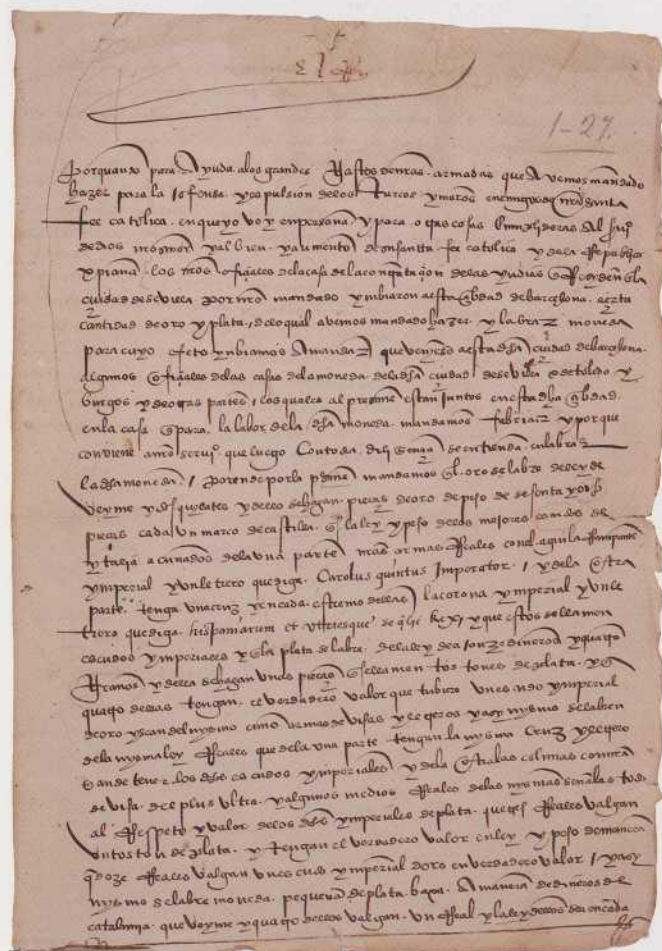 El Rey
1-27.
Por quanto para Ayuda alos grandes gastos de nras armadas que Avemos mandado
hazer para la ofensa y espulsion delos turcos y moros enemigos de nra santa
fee catolica en que yo voy en persona y para otras cosas Cumplideras al serui°
de dios nro señor y al bien y aumento de su santa fee catolica y dela Republica
xpiana los nros ofiçiales dela casa dela contrataçion delas yndias que Residen en la
ciudad de seuilla por nro mandado ynbiaron a esta çibdad de barçelona çierta
cantidad de oro y plata delo qual avemos mandado hazer y labrar moneda
para cuyo efeto ynbiamos A mandar que veniesen a esta dha ciudad de barçelona
algunos ofiçiales delas casas dela moneda dela dha ciudad de seuilla de toledo y
burgos y de otras partes los quales al presente estan juntos en esta dha çibdad
en la casa que para la labor dela dha moneda mandamos y porque
conviene A nro serui° que luego Con toda se entienda en labrar
la dha moneda / por ende por la presente mandamos quel oro se labre de ley de
veynte y dos quilates y dello se hagan pieças de oro de peso de sesenta y ocho
pieças cada un marco de castilla que es la ley y peso delos mejores escudos de
ytalia acuñados dela una parte nras armas Reales con el aguila
ymperial y un letrero que diga Carolus quintus Imperator / y dela otra
parte tenga una cruz y en cada estremo della la corona ymperial y un le
trero que diga hispaniarum et utriusque Rex / y que estos se llamen
escudos ymperiales y la plata se labre dela ley de a onze dineros y quatro
granos y della se hagan unas pieças que se llamen tostones de plata y que
quatro dellos tengan el verdadero valor que tubiere un escudo ymperial
de oro y sean del mysmo cuño armas devisas y letreros y asy mysmo se labren
dela mysma ley Reales que dela una parte tengan la mysma Cruz y letrero
que an de tener los dhos escudos ymperiales y dela otra las colunas como nra
devisa de plus ultra y algunos medios Reales delas mysmas señales todo
al Respeto y valor delos dhos ymperiales de plata que tres Reales valgan
un toston de plata y tengan el verdadero valor en ley y peso de manera
que doze Reales valgan un escudo ymperial de oro en verdadero valor / y asy
mysmo se labre moneda pequeña de plata baxa A manera de dineros de
cataluña que veynte y quatro dellos valgan un Real y la ley dellos